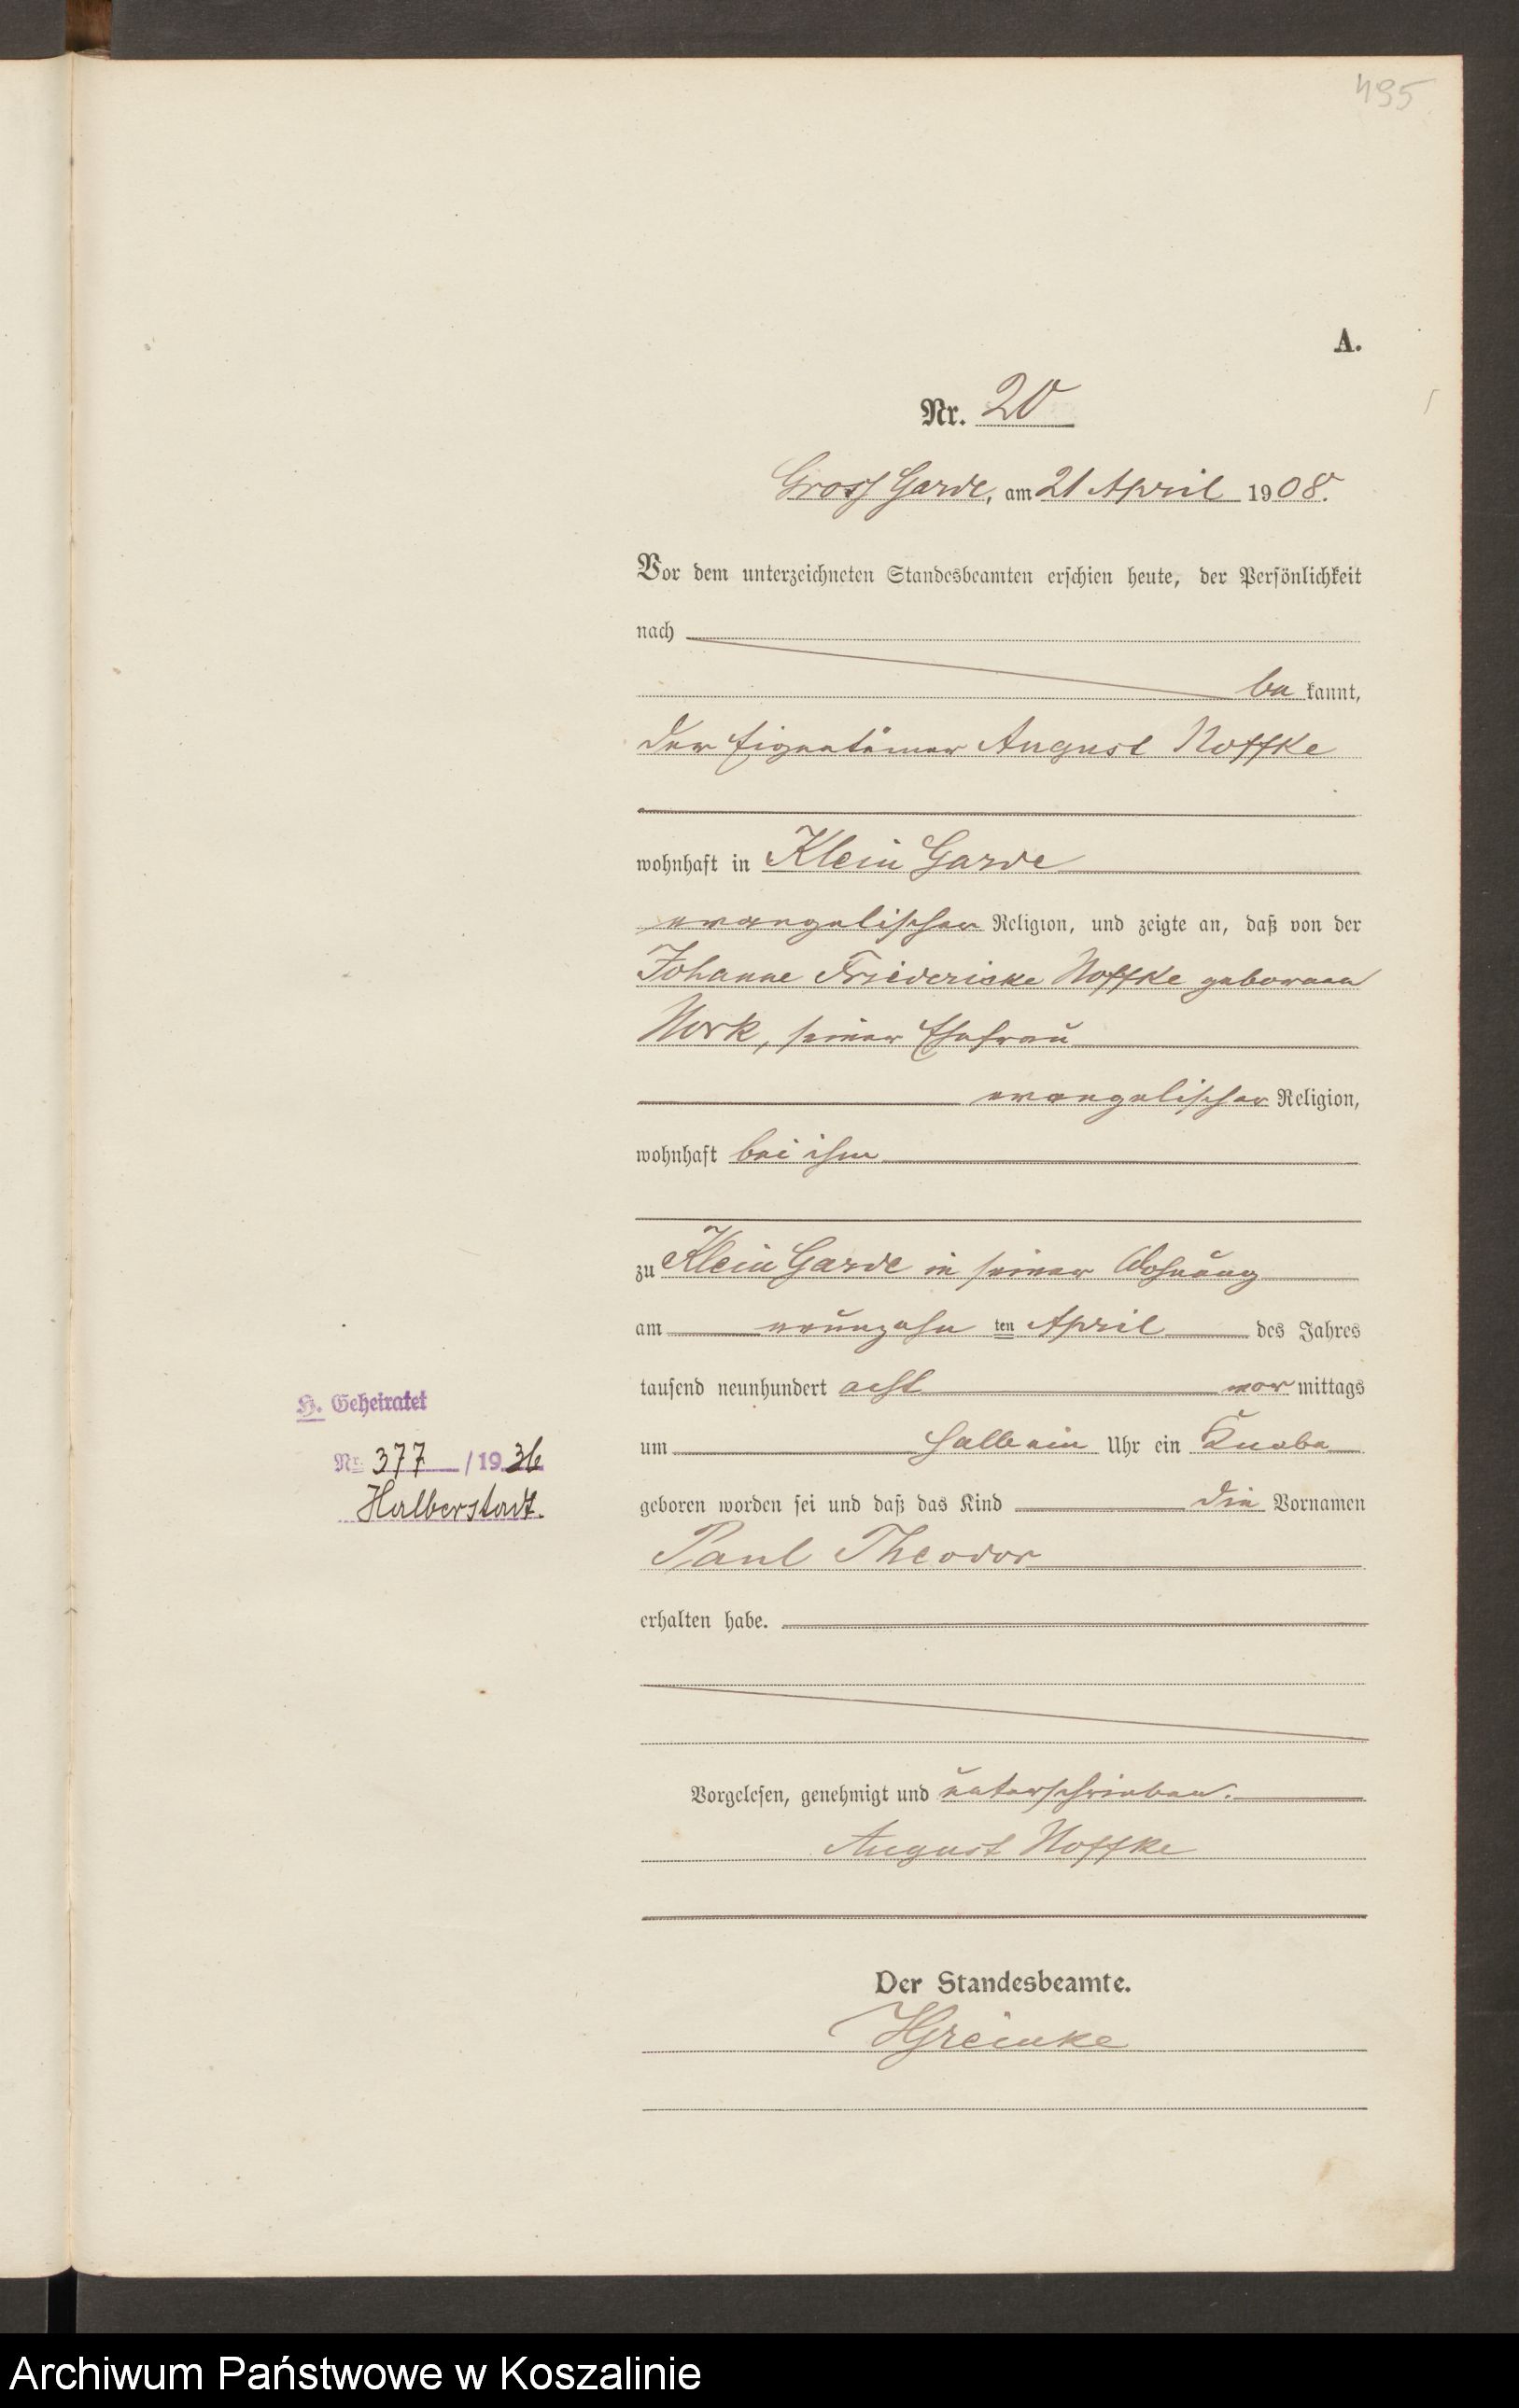 495
A.
Nr. 20
Gross Garde, am 21 April 1908.
Vor dem unterzeichneten Standesbeamten erschien heute, der Persönlichkeit
nach
be kannt,
der Eigentümer August Noffke
wohnhaft in Klein Garde
evangelischer Religion, und zeigte an, daß von der
Johanne Friedericke Noffke geborenen
Nork, seiner Ehefrau
evangelischer Religion,
wohnhaft bei ihm
zu Klein Garde in seiner Wohnung
am neunzehn ten April des Jahres
tausend neunhundert acht vor mittags
um halb ein Uhr ein Knabe
geboren worden sei und daß das Kind die Vornamen
Paul Theodor
erhalten habe.
Vorgelesen, genehmigt und unterschrieben.
August Noffke
Der Standesbeamte.
HGreinke
H. Geheiratet
Nr. 377 /1936
Halberstadt.
Archiwum Państwowe w Koszalinie